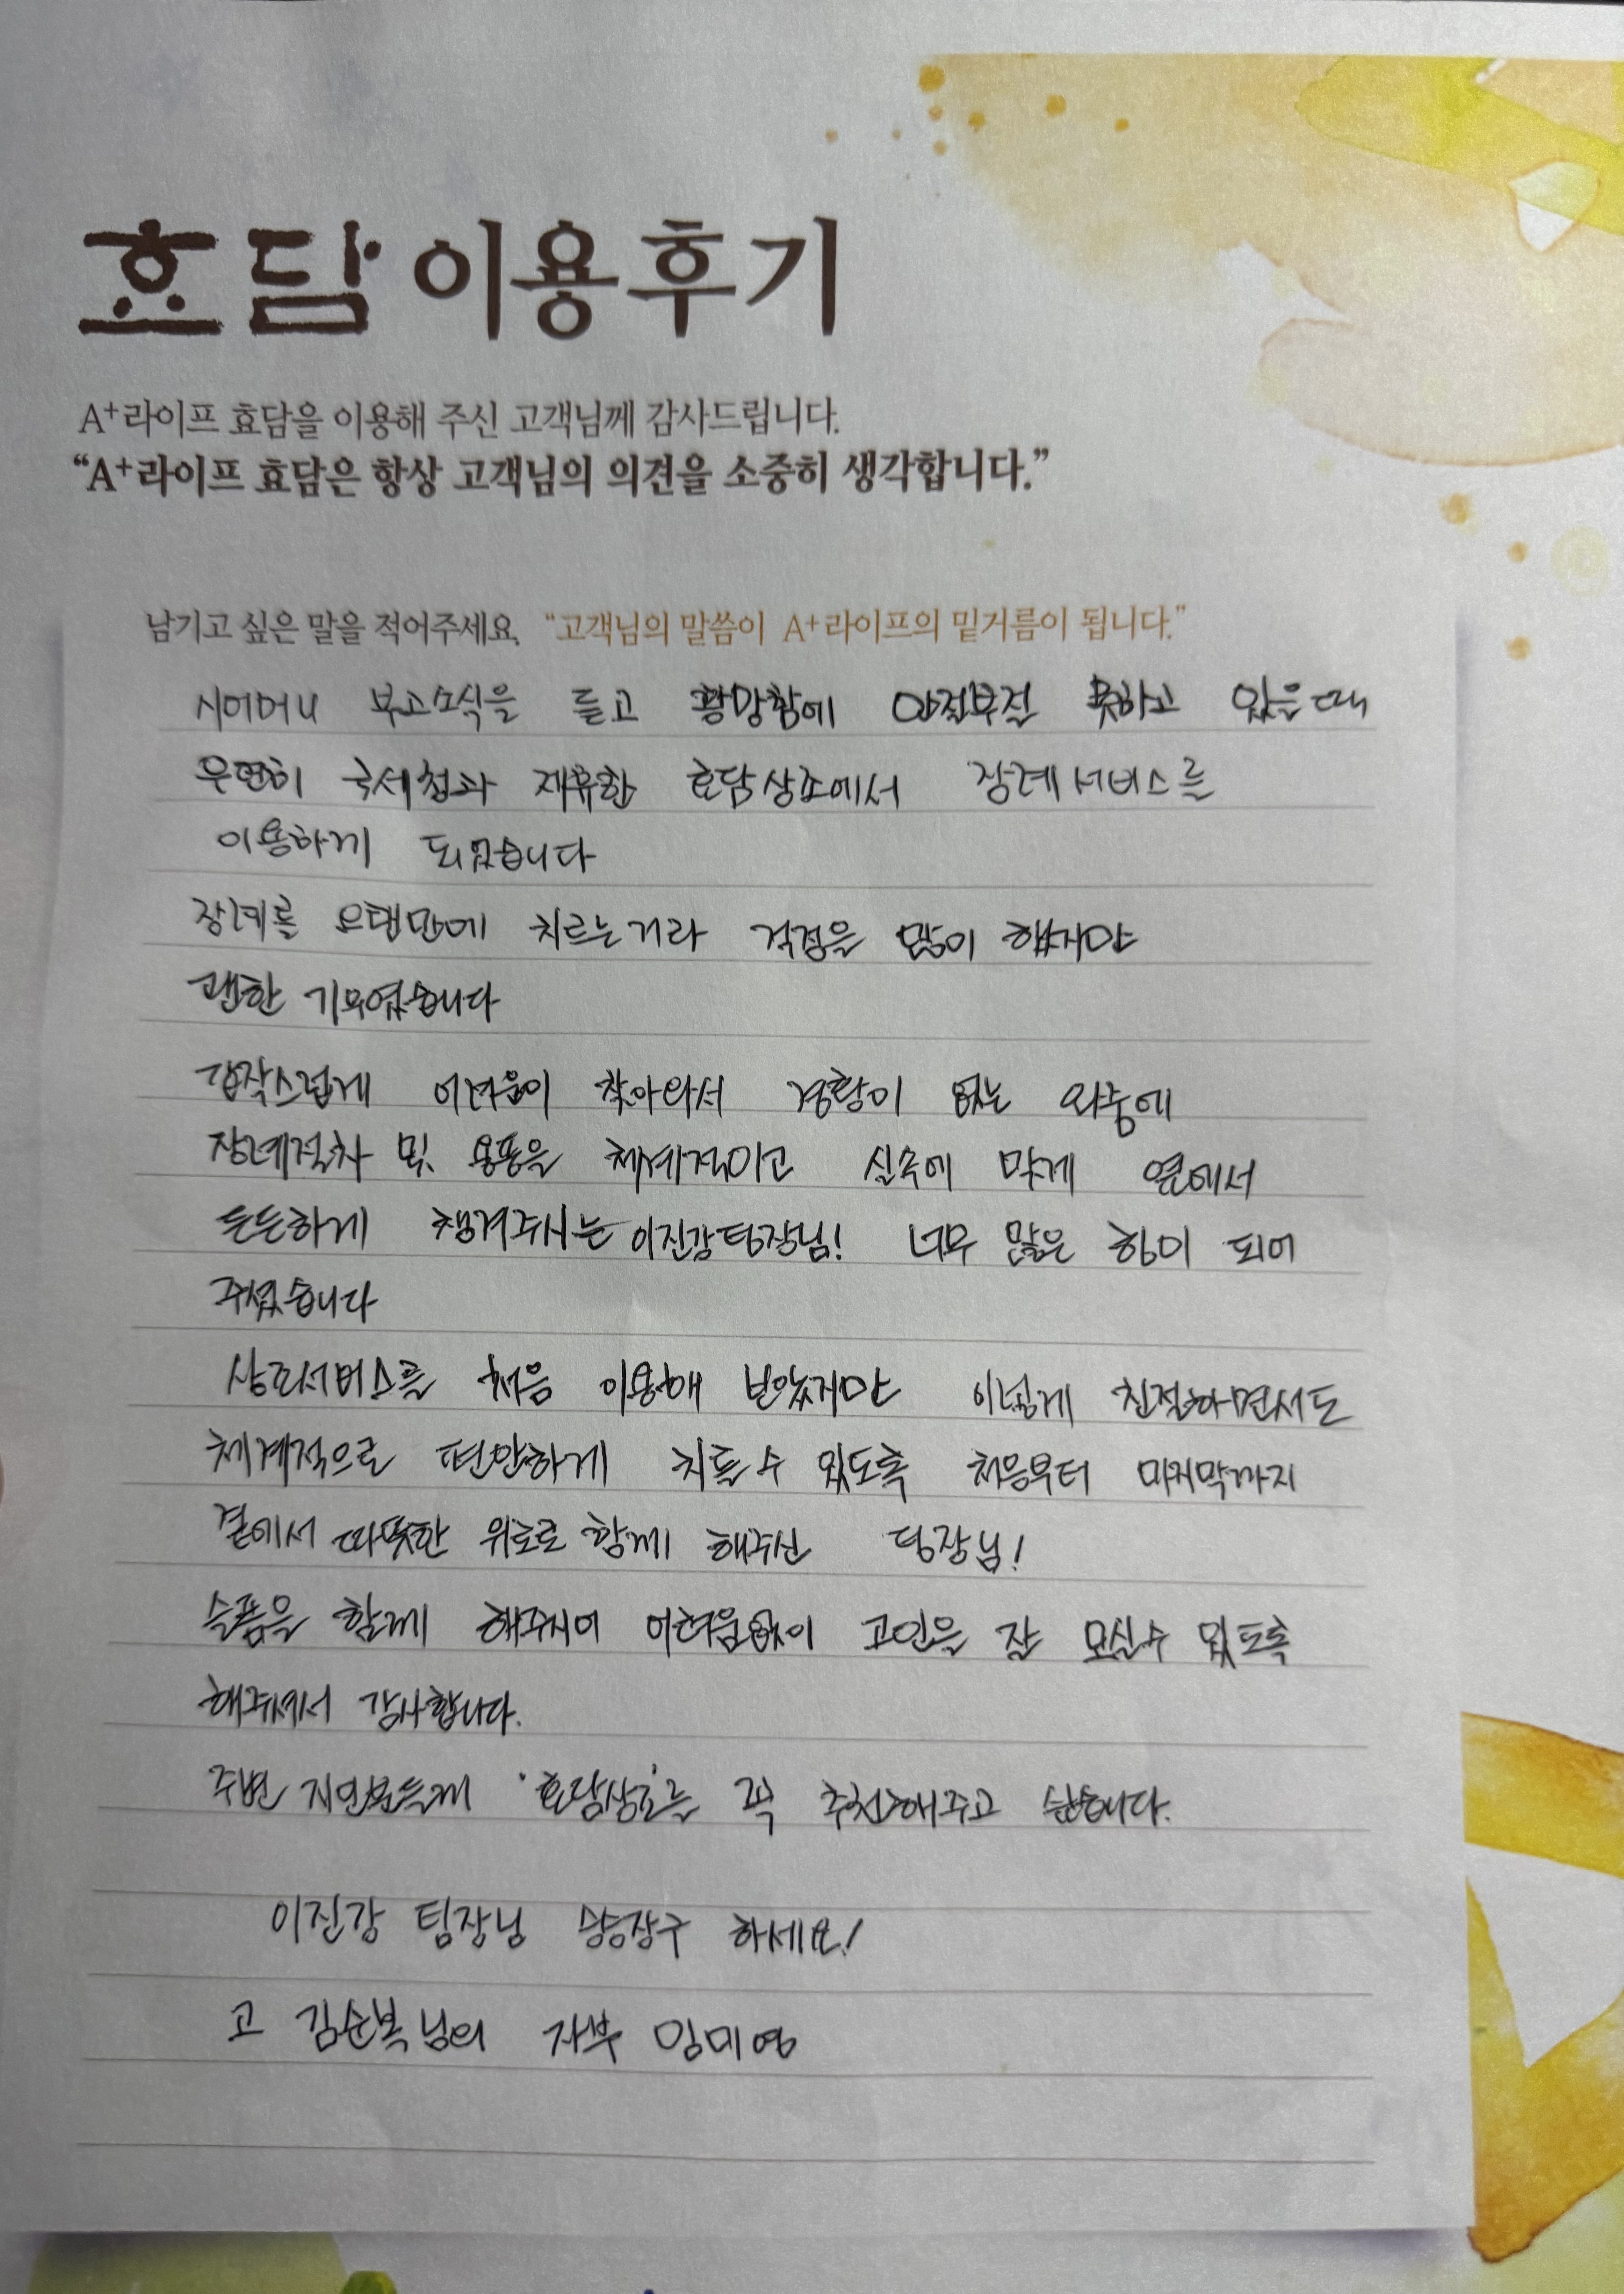 효담 이용후기
A⁺라이프 효담을 이용해 주신 고객님께 감사드립니다.
“A⁺라이프 효담은 항상 고객님의 의견을 소중히 생각합니다.”
남기고 싶은 말을 적어주세요. “고객님의 말씀이 A⁺라이프의 밑거름이 됩니다.”
시어머니 부고소식을 듣고 황망함에 안절부절 못하고 있을때
우연히 국세청과 제휴한 효담상조에서 장례서비스를
이용하게 되었습니다
장례를 오랜만에 치르는거라 걱정을 많이 했지만
괜한 기우였습니다
갑작스럽게 어려움이 찾아와서 경황이 없는 와중에
장례절차 및 용품을 체계적이고 실속에 맞게 옆에서
든든하게 챙겨주시는 이진강팀장님! 너무 많은 힘이 되어
주셨습니다
상조서비스를 처음 이용해 보았지만 이렇게 친절하면서도
체계적으로 편안하게 치를수 있도록 처음부터 마지막까지
곁에서 따뜻한 위로로 함께 해주신 팀장님!
슬픔을 함께 해주시어 어려움없이 고인을 잘 모실수 있도록
해주셔서 감사합니다.
주변 지인분들께 '효담상조'를 꼭 추천해주고 싶습니다.
이진강 팀장님 승승장구 하세요!
고 김순복님의 자부 임미영